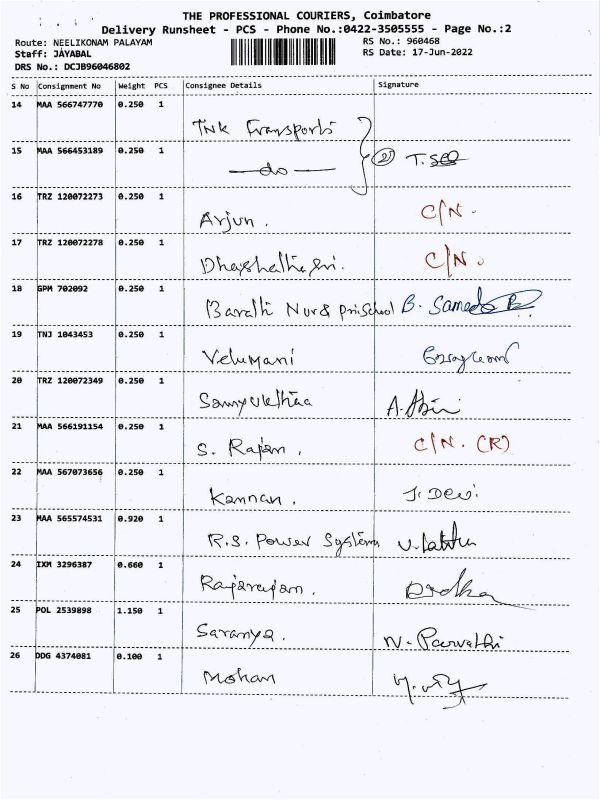 THE PROFESSIONAL COURIERS, Coimbatore
Delivery Runsheet - PCS - Phone No.:0422-3505555 - Page No.:2
Route: NEELIKONAM PALAYAM RS No.: 960468
Staff: JAYABAL RS Date: 17-Jun-2022
DRS No.: DCJB96046802
S No Consignment No Weight PCS Consignee Details Signature
14 MAA 566747770 0.250 1
TNK Transports
15 MAA 566453189 0.250 1
do (2) T.
16 TRZ 120072273 0.250 1
Arjun. C/N.
17 TRZ 120072278 0.250 1
C/N.
18 GPM 702092 0.250 1
Barathi Nur & Pri School B.
19 TNJ 1043453 0.250 1
Velumani
20 TRZ 120072349 0.250 1
A.
21 MAA 566191154 0.250 1
S. Rajan. C/N. (R)
22 MAA 567073656 0.250 1
Kannan. J. Devi
23 MAA 565574531 0.920 1
R.S. Power Systems
24 IXM 3296387 0.660 1
Rajarajan.
25 POL 2539898 1.150 1
Saranya. N. Parvathi
26 DDG 4374081 0.100 1
Mohan